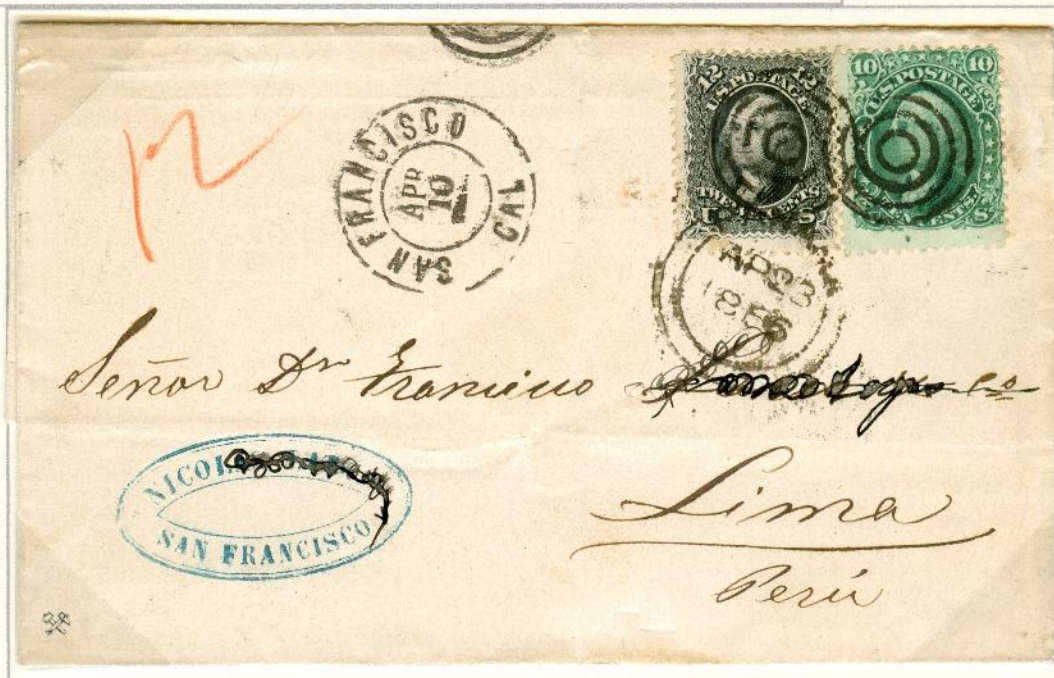 12
SAN FRANCISCO CAL
APR
10
12 12
U.S. POSTAGE
TWELVE CENTS
U S
10 10
U.S. POSTAGE
TEN CENTS
U S
AP 23
Señor Dn Francisco
NICOLAS
SAN FRANCISCO
Lima
Perú